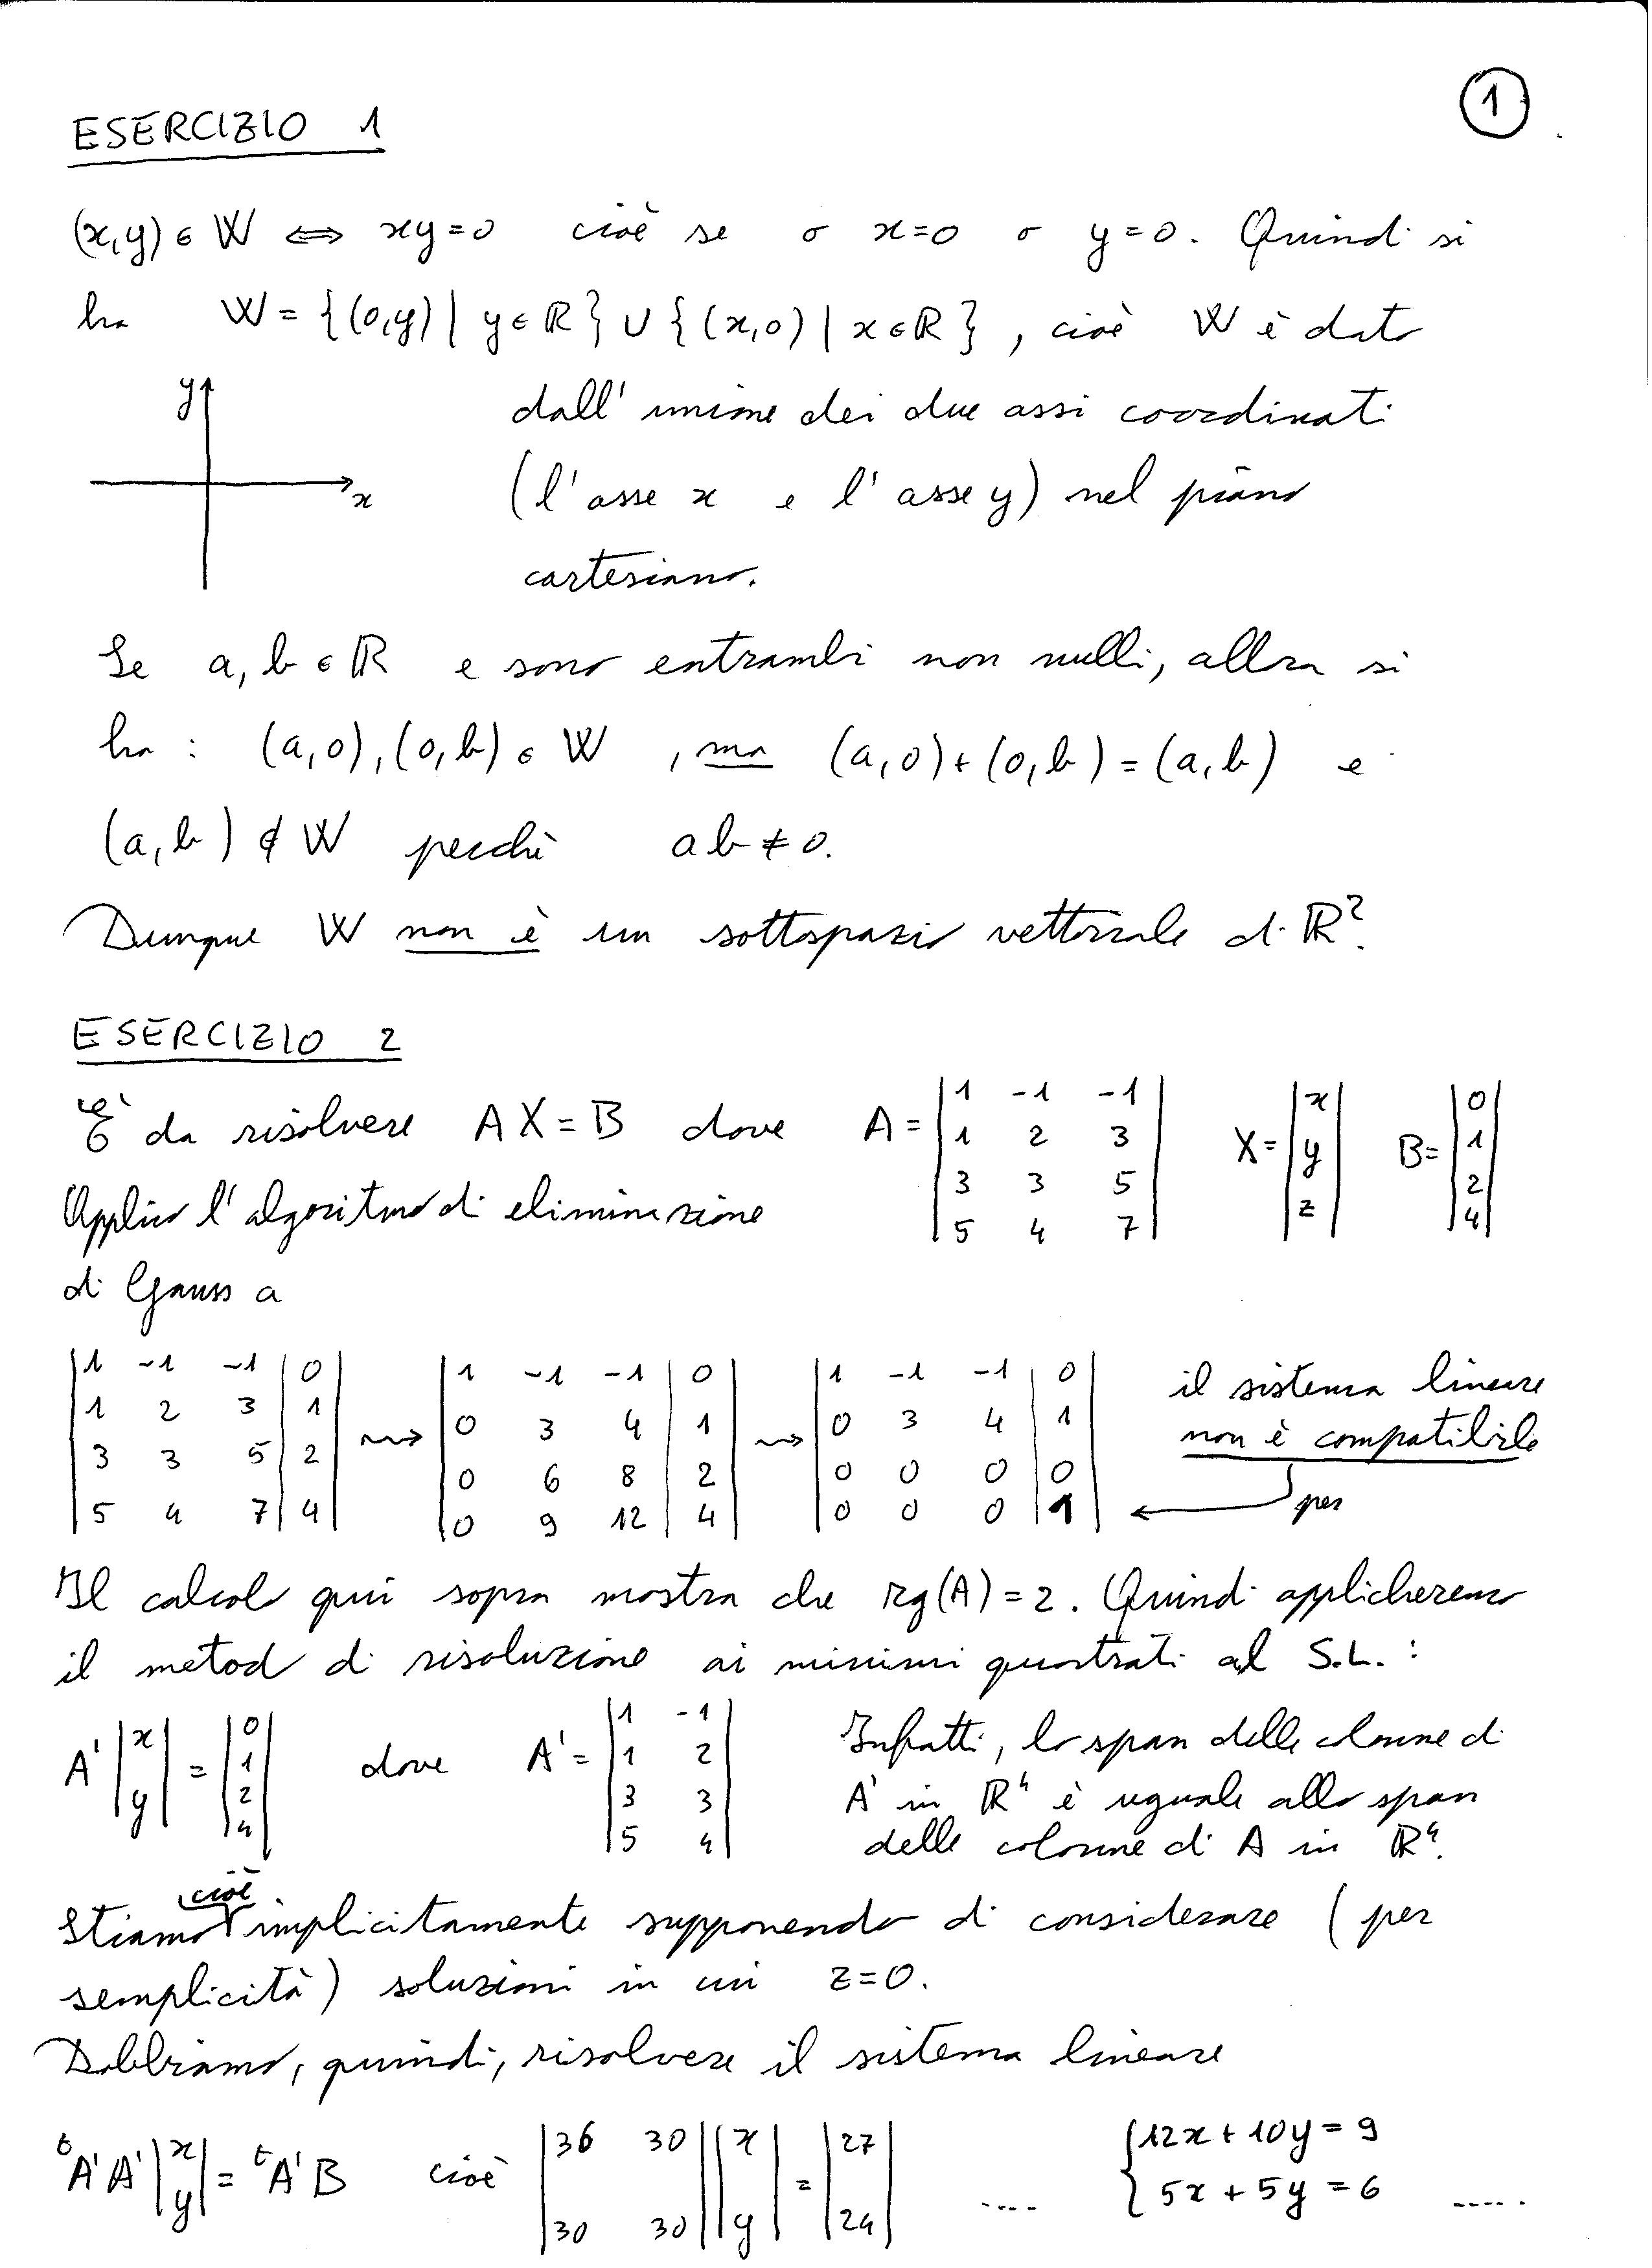 1
ESERCIZIO 1
(x,y) ∈ W ⟺ xy=0 cioè se o x=0 o y=0. Quindi si
ha W = {(0,y) | y∈ℝ} ∪ {(x,0) | x∈ℝ}, cioè W è dato
y
dall'unione dei due assi coordinati
x
(l'asse x e l'asse y) nel piano
cartesiano.
Se a, b ∈ ℝ e sono entrambi non nulli, allora si
ha : (a,0), (0,b) ∈ W , ma (a,0)+(0,b) = (a,b) e
(a,b) ∉ W perchè ab ≠ 0.
Dunque W non è un sottospazio vettoriale di ℝ².
ESERCIZIO 2
È da risolvere AX = B dove A = |1 -1 -1| |1 2 3| |3 3 5| |5 4 7| X = |x| |y| |z| B = |0| |1| |2| |4|
Applico l'algoritmo di eliminazione
di Gauss a
|1 -1 -1 | 0| |1 -1 -1 | 0| |1 -1 -1 | 0| il sistema lineare
|1 2 3 | 1| ⇝ |0 3 4 | 1| ⇝ |0 3 4 | 1| non è compatibile
|3 3 5 | 2| |0 6 8 | 2| |0 0 0 | 0|
|5 4 7 | 4| |0 9 12 | 4| |0 0 0 | 1| ← per
Il calcolo qui sopra mostra che rg(A) = 2. Quindi applicheremo
il metodo di risoluzione ai minimi quadrati al S.L. :
A' |x| |y| = |0| |1| |2| |4| dove A' = |1 -1| |1 2| |3 3| |5 4|
Infatti, lo span delle colonne di
A' in ℝ⁴ è uguale allo span
delle colonne di A in ℝ⁴.
Stiamo cioè implicitamente supponendo di considerare (per
semplicità) soluzioni in cui z=0.
Dobbiamo, quindi, risolvere il sistema lineare
ᵗA'A' |x| |y| = ᵗA'B cioè |36 30| |30 30| |x| |y| = |27| |24| .... { 12x + 10y = 9 5x + 5y = 6 .....